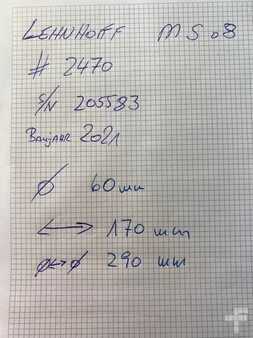 LEHNHOFF MS08
# 2470
S/N 205583
BAUJAAR 2021
Ø 60mm
↔ 170 mm
Ø↔Ø 290 mm